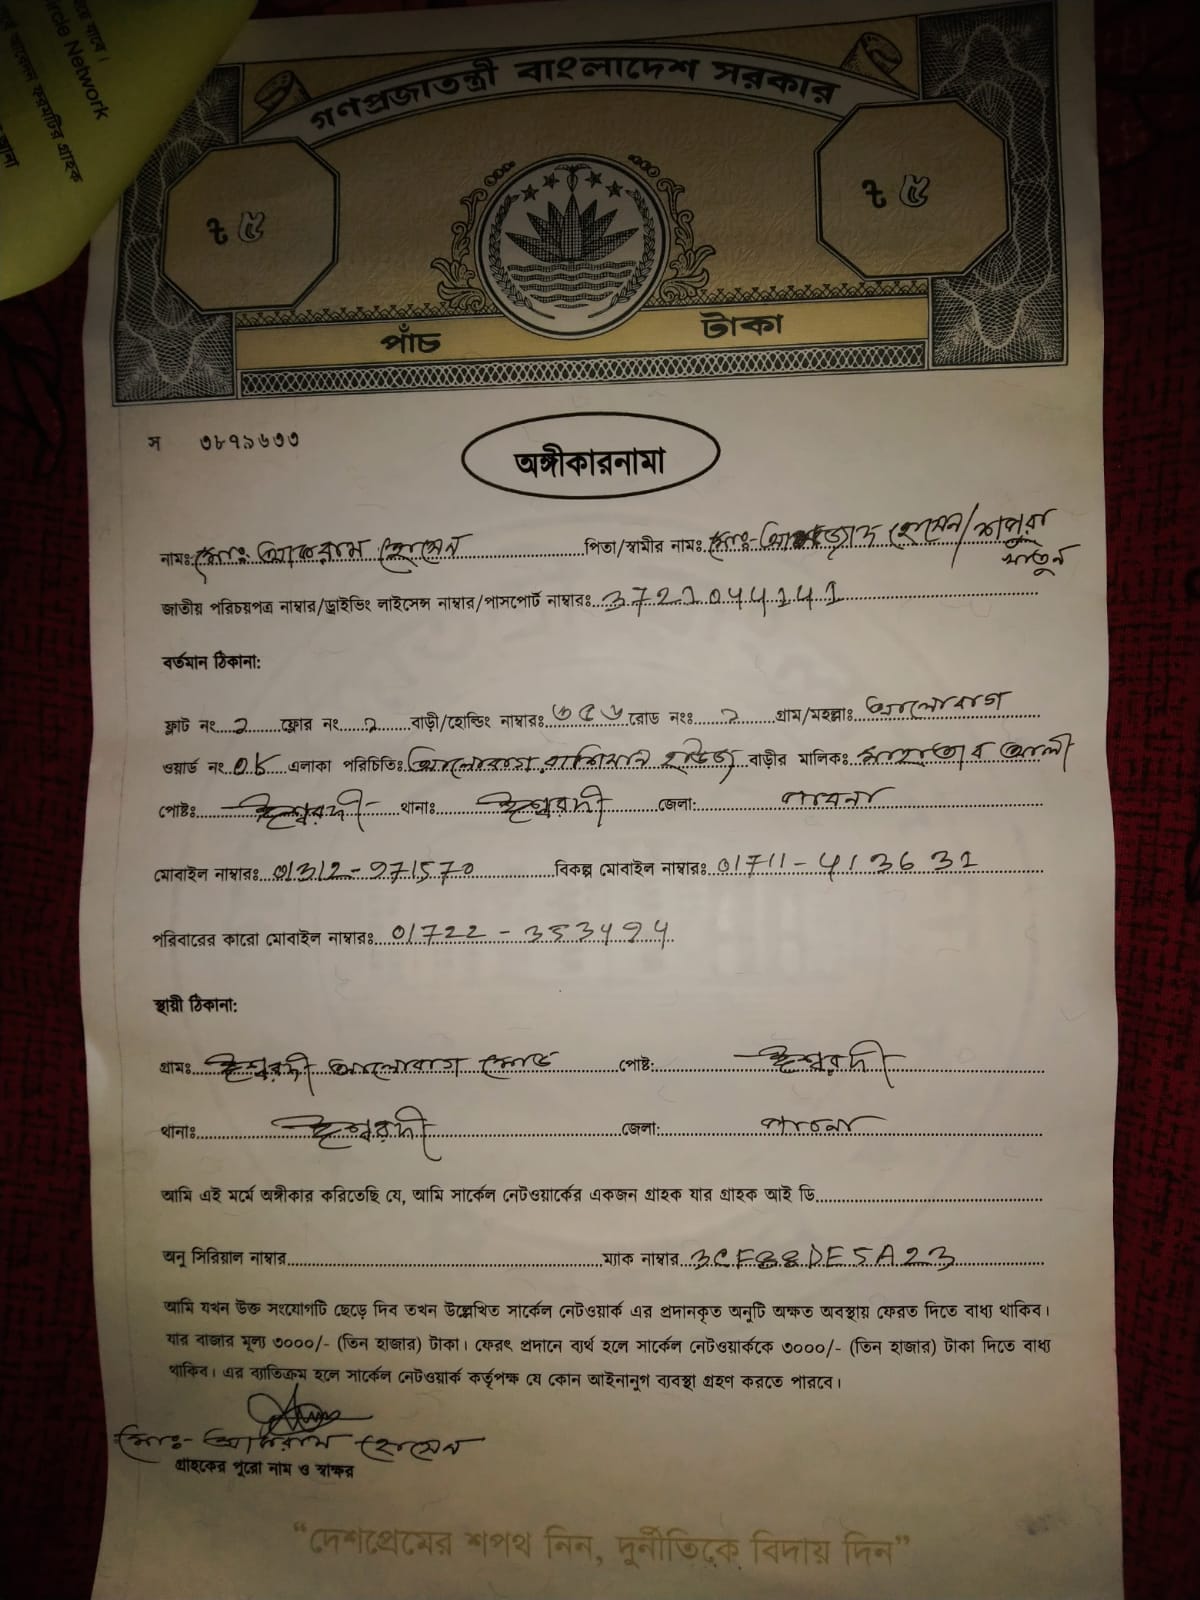 যাবে।
Circle Network
আবেদন ফরমটির গ্রাহক
গণপ্রজাতন্ত্রী বাংলাদেশ সরকার
৳ ৫ ৳ ৫
পাঁচ টাকা
স ৩৮৭৯৬৩৩
অঙ্গীকারনামা
নামঃ মোঃ- আকরাম হোসেন পিতা/স্বামীর নামঃ মোঃ- হোসেন/
খাতুন
জাতীয় পরিচয়পত্র নাম্বার/ড্রাইভিং লাইসেন্স নাম্বার/পাসপোর্ট নাম্বারঃ 3721044141
বর্তমান ঠিকানা:
ফ্লাট নং ২ ফ্লোর নং ২ বাড়ী/হোল্ডিং নাম্বারঃ ৩৫৬ রোড নংঃ ২ গ্রাম/মহল্লাঃ আলোবাগ
ওয়ার্ড নং 05 এলাকা পরিচিতিঃ আলোবাগ বাড়ীর মালিকঃ আলী
পোষ্টঃ ঈশ্বরদী থানাঃ ঈশ্বরদী জেলা: পাবনা
মোবাইল নাম্বারঃ 01312-971570 বিকল্প মোবাইল নাম্বারঃ 01711-413631
পরিবারের কারো মোবাইল নাম্বারঃ 01722-353494
স্থায়ী ঠিকানা:
গ্রামঃ ঈশ্বরদী আলোবাগ মোড় পোষ্ট: ঈশ্বরদী
থানাঃ ঈশ্বরদী জেলা: পাবনা
আমি এই মর্মে অঙ্গীকার করিতেছি যে, আমি সার্কেল নেটওয়ার্কের একজন গ্রাহক যার গ্রাহক আই ডি
অনু সিরিয়াল নাম্বার ম্যাক নাম্বার 3CF88DE5A23
আমি যখন উক্ত সংযোগটি ছেড়ে দিব তখন উল্লেখিত সার্কেল নেটওয়ার্ক এর প্রদানকৃত অনুটি অক্ষত অবস্থায় ফেরত দিতে বাধ্য থাকিব।
যার বাজার মূল্য ৩০০০/- (তিন হাজার) টাকা। ফেরৎ প্রদানে ব্যর্থ হলে সার্কেল নেটওয়ার্ককে ৩০০০/- (তিন হাজার) টাকা দিতে বাধ্য
থাকিব। এর ব্যাতিক্রম হলে সার্কেল নেটওয়ার্ক কর্তৃপক্ষ যে কোন আইনানুগ ব্যবস্থা গ্রহণ করতে পারবে।
মোঃ- আকরাম হোসেন
গ্রাহকের পুরো নাম ও স্বাক্ষর
“দেশপ্রেমের শপথ নিন, দুর্নীতিকে বিদায় দিন”